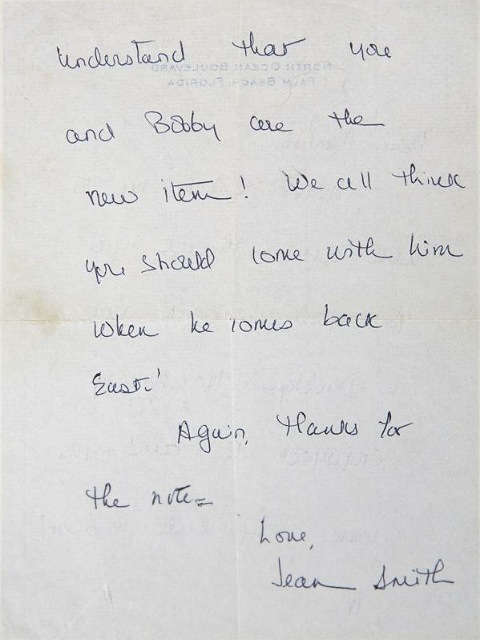 Understand that you
NORTH OCEAN BOULEVARD
PALM BEACH, FLORIDA
and Bobby are the
new item! We all think
you should come with him
when he comes back
East!
Again, thanks for
the note –
Love,
Jean Smith